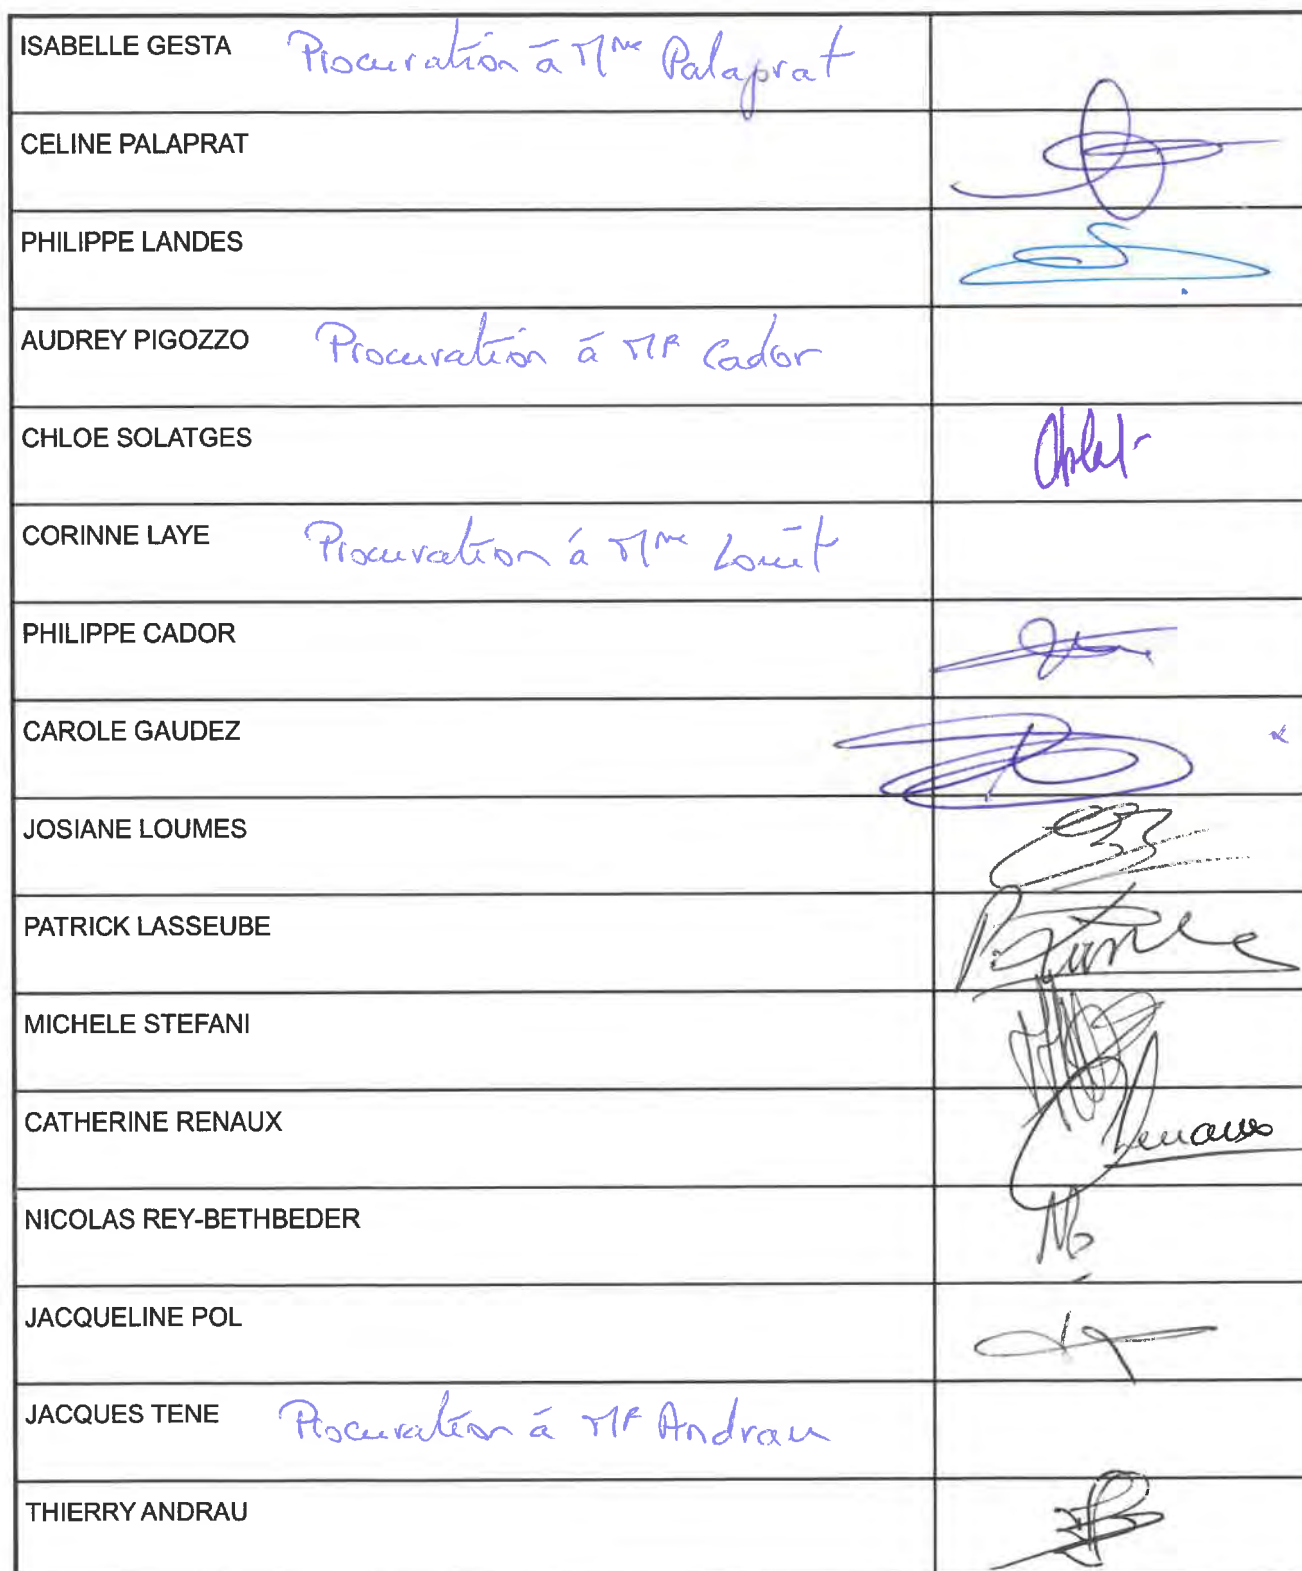 ISABELLE GESTA Procuration à Mme Palaprat
CELINE PALAPRAT
PHILIPPE LANDES
AUDREY PIGOZZO Procuration à Mr Cador
CHLOE SOLATGES
CORINNE LAYE Procuration à Mme Louït
PHILIPPE CADOR
CAROLE GAUDEZ
JOSIANE LOUMES
PATRICK LASSEUBE
MICHELE STEFANI
CATHERINE RENAUX
NICOLAS REY-BETHBEDER
JACQUELINE POL
JACQUES TENE Procuration à Mr Andrau
THIERRY ANDRAU